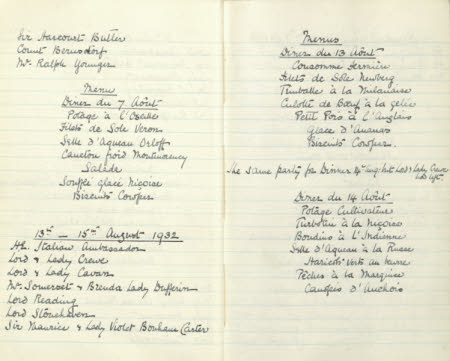 Sir Harcourt Butler
Count Bernsdorf
Mr. Ralph Younger
Menu
Diner du 7 Août
Potage à l'Oseille
Filets de Sole Veron
Selle d'Agneau Orloff
Caneton froid Montmorency
Salade
Soufflé glacé Niçoise
Biscuits
13th – 15th August 1932
Italian Ambassador
Lord & Lady Crewe
Lord & Lady Cavan
Mr. Somerset & Brenda Lady Dufferin
Lord Reading
Lord Stonehaven
Sir Maurice & Lady Violet Bonham Carter
Menus
Diner du 13 Août
Consommé Fermière
Filets de Sole Newberg
Timballe à la Milanaise
Culotte de Bœuf à la gelée
Petit Pois à l'Anglais
Glace d'Ananas
Biscuits
The same party for Dinner 14th Aug. but Lord & Lady Crewe
had left.
Diner du 14 Août
Potage Cultivateur
Turbotin à la Niçoise
Boudins à l'Indienne
Selle d'Agneau à la Russe
Haricots Verts au beurre
Pêches à la Marquise
Canapés d'Anchois